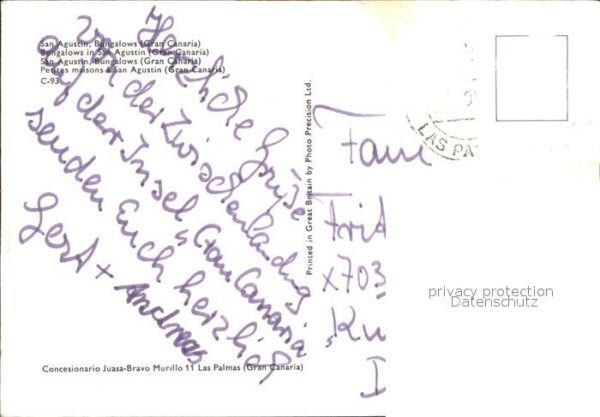 San Agustin, Bungalows (Gran Canaria)
Bungalows in San Agustin (Gran Canaria)
San Agustin, Bungalows (Gran Canaria)
Petites maisons à San Agustin (Gran Canaria)
C-93
Herzliche Grüße
von der Zwischenlandung
auf der Insel "Gran Canaria
senden Euch herzlich
Gert + Andreas
Printed in Great Britain by Photo Precision Ltd.
LAS PA
Fam
Frit
x703
"Ku
D
privacy protection
Datenschutz
Concesionario Juasa-Bravo Murillo 11 Las Palmas (Gran Canaria)